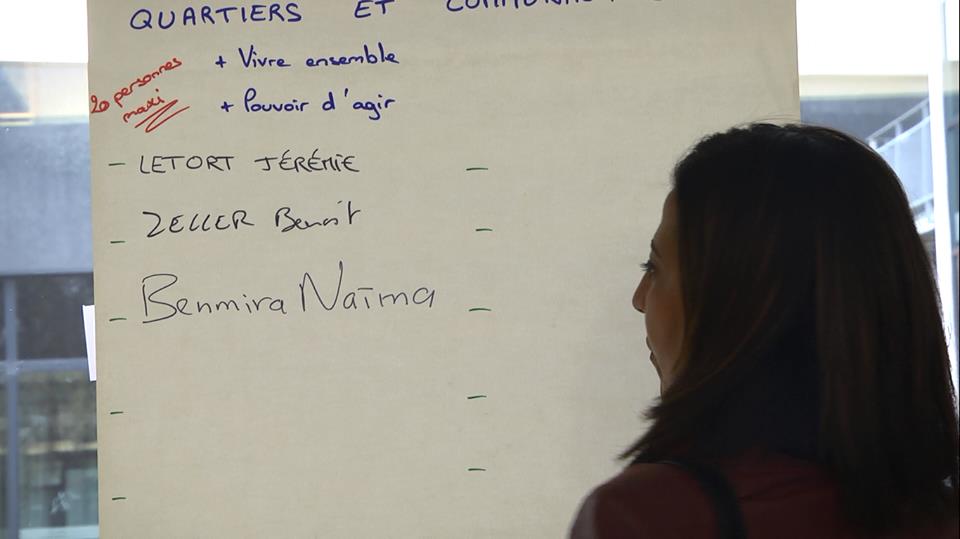 QUARTIERS ET
+ Vivre ensemble
20 personnes
maxi
+ Pouvoir d'agir
- LETORT JÉRÉMIE -
- ZELLER Benoît -
- Benmira Naïma -
- -
- -